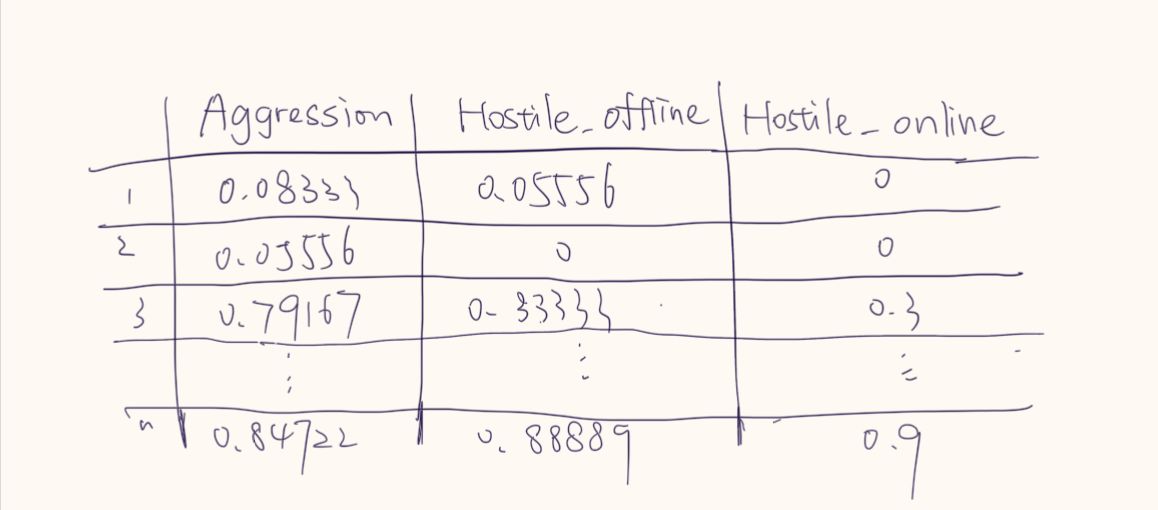 Aggression Hostile_offline Hostile_online
1 0.08333 0.05556 0
2 0.05556 0 0
3 0.79167 0.33333 0.3
⋮ ⋮ ⋮
n 0.84722 0.88889 0.9